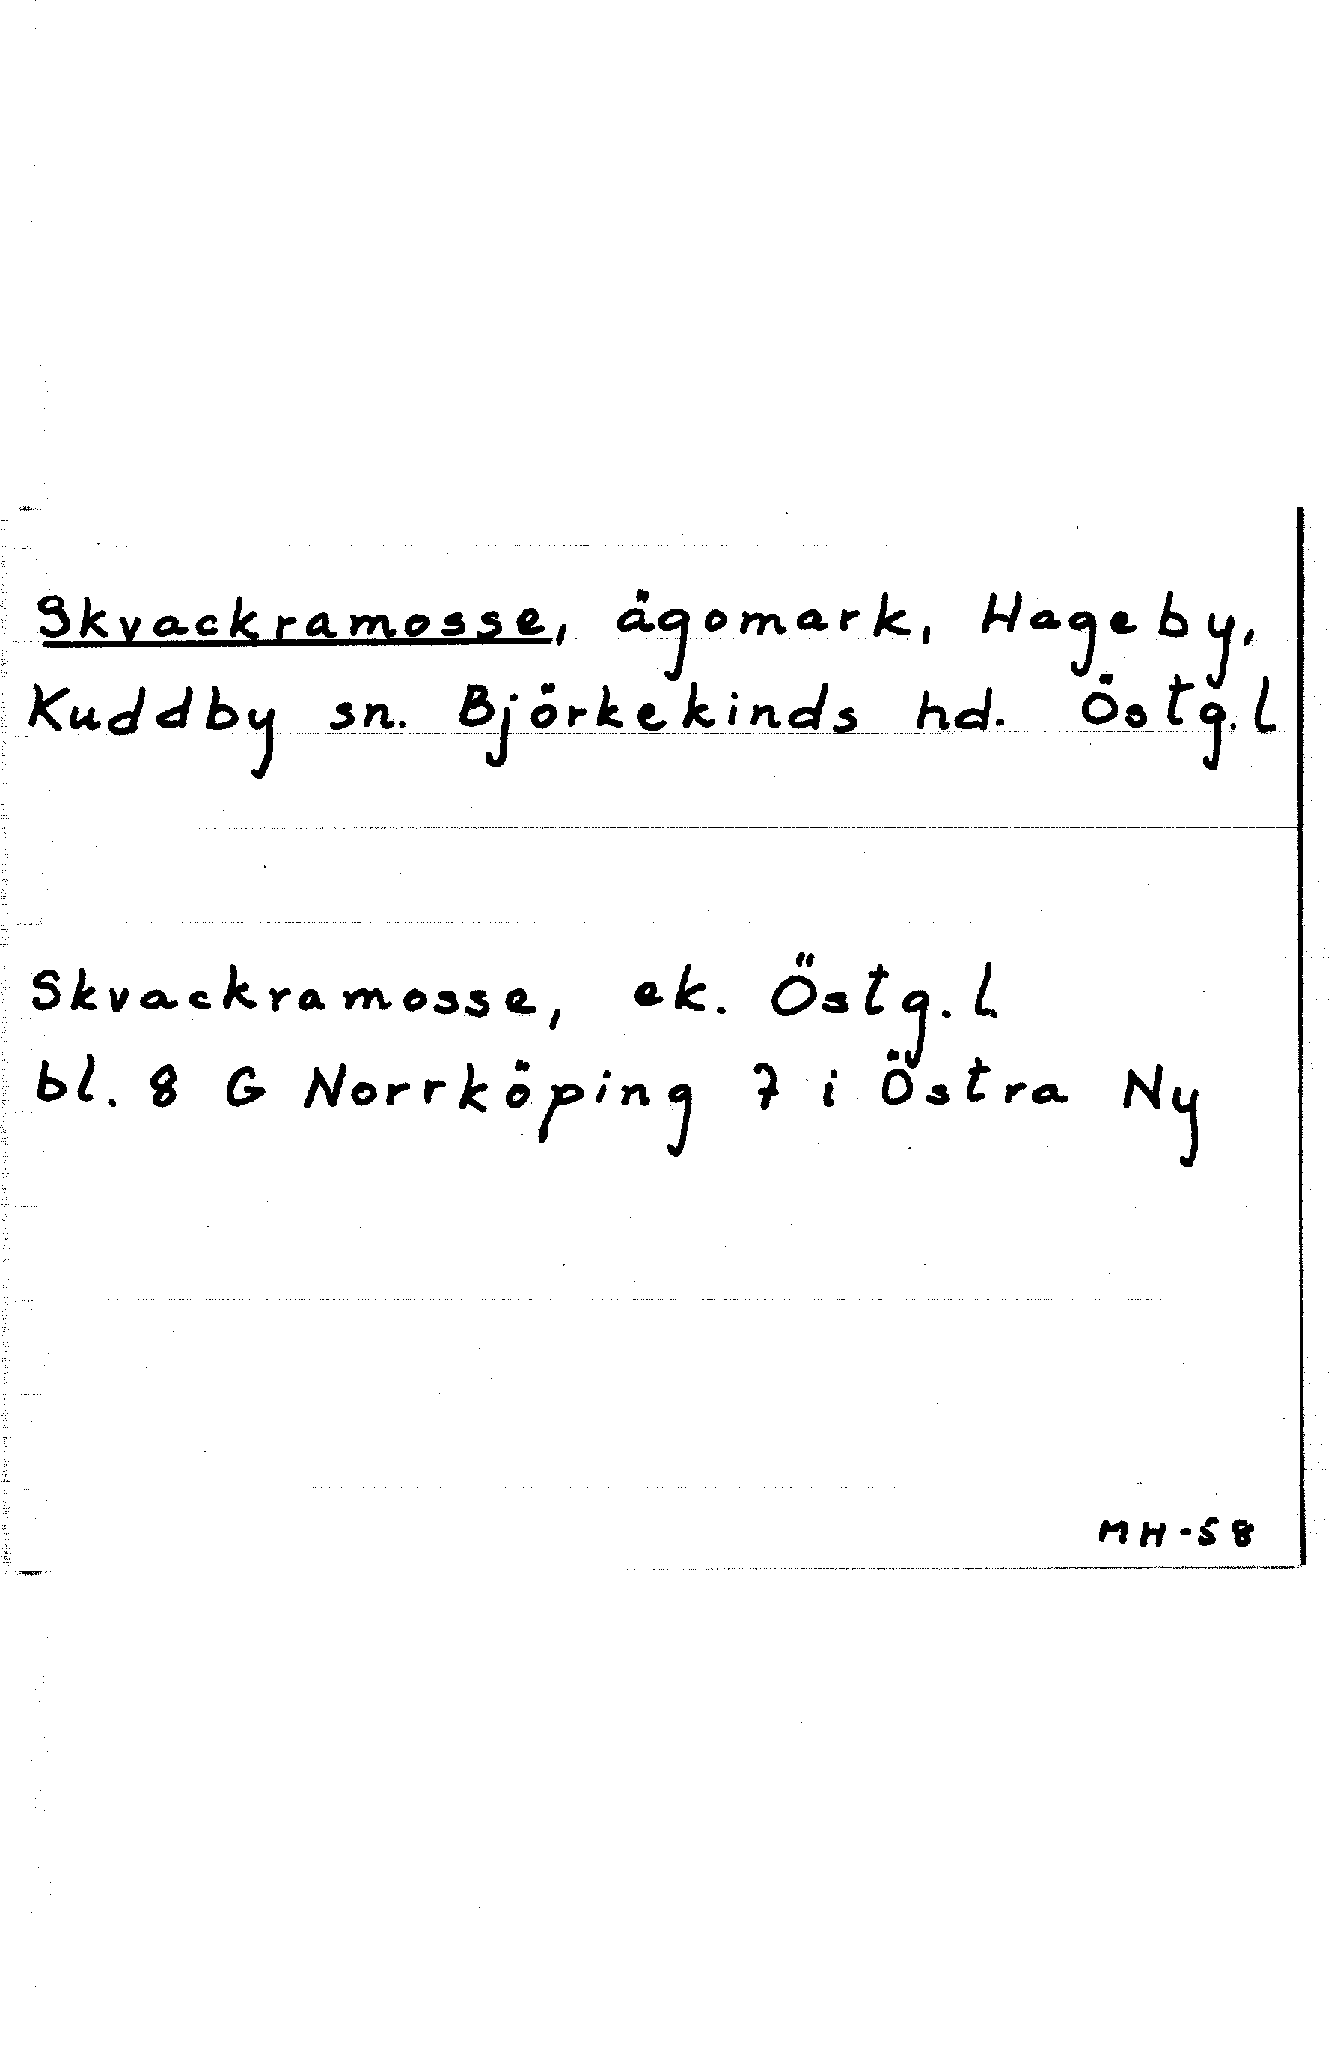 Skvackramosse, ägomark, Hageby,
Kuddby sn. Björkekinds hd. Östg.l
Skvackramosse, ek. Östg.l.
bl. 8 G Norrköping 7 i Östra Ny
MH-58